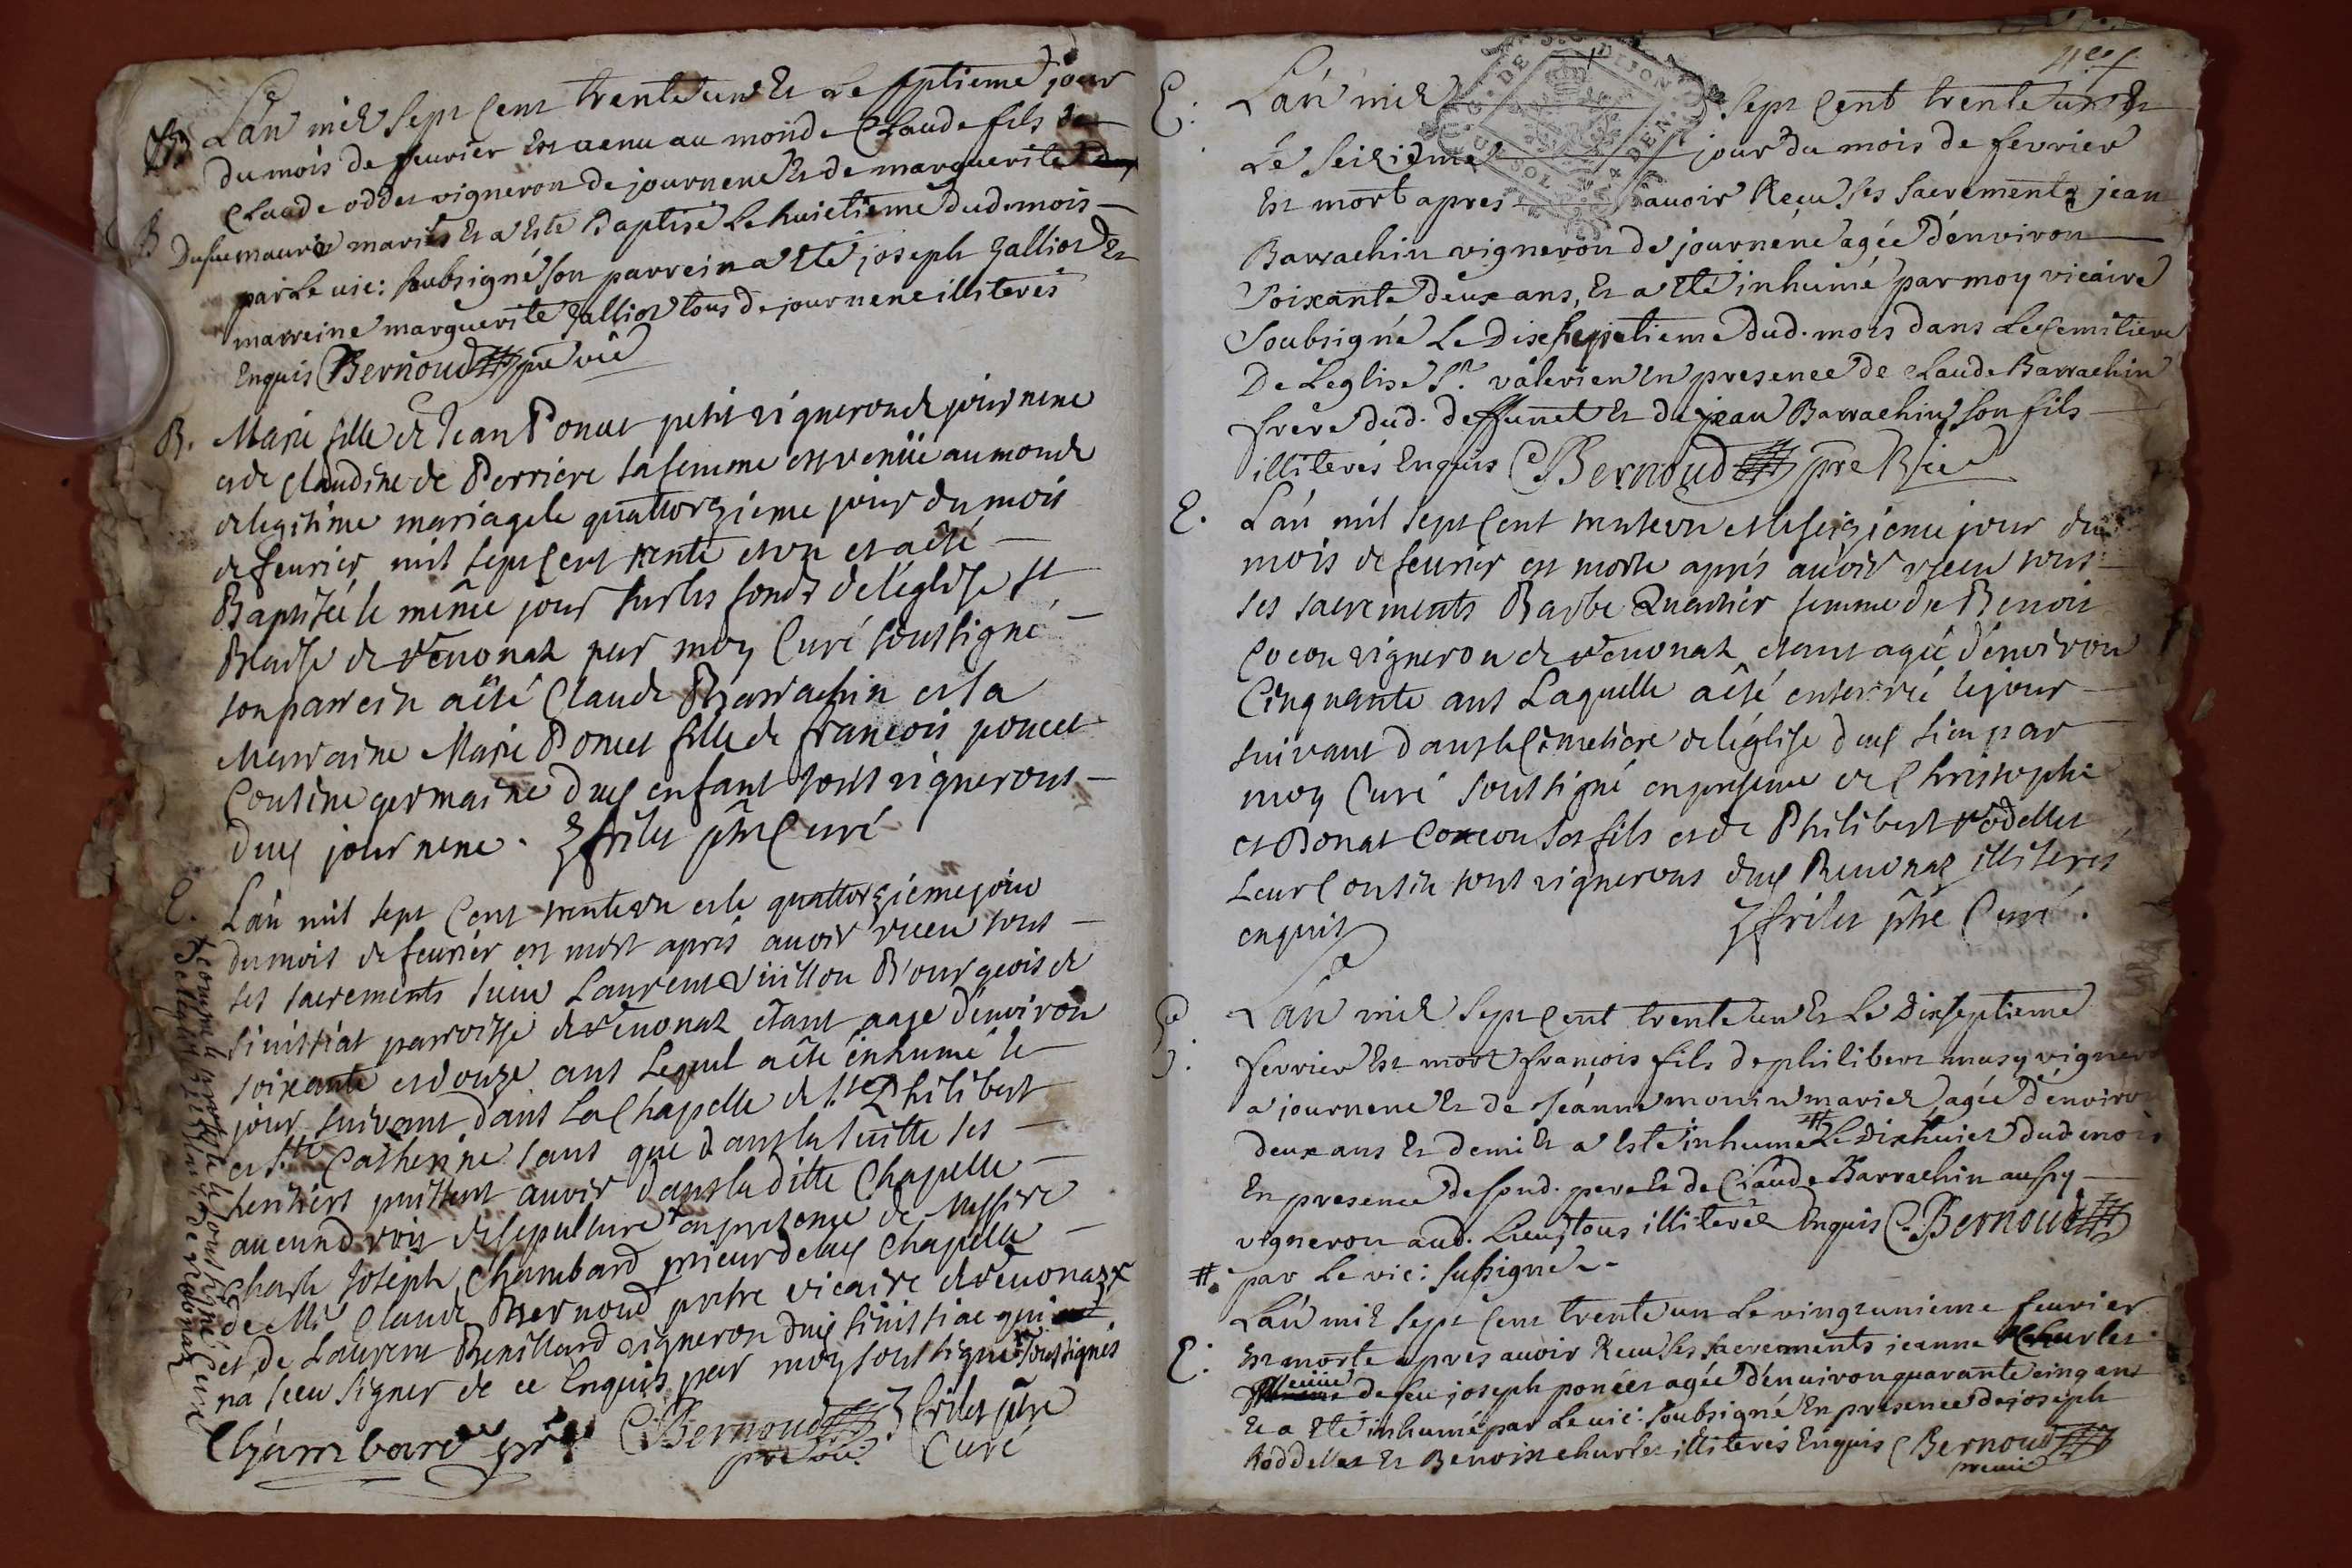 B
Lan mil sept cent trente un et Le septieme jour
du mois de feurier est uenu au monde Claude fils de
Claude oddet vigneron de journene et de marguerite
B
Dufuemaurie mariés et a Este Baptisé Le huictieme dud. mois
par Le uic: soubsigné son parrein a Eté joseph Jallion Et
marreine marguerite Jallion tous de journene illiterés
Enquis Bernoud ptre vic
B. Marie fille de Jean Poncet petit vigneron de journene
et de Claudine de Perriere sa femme est venüe au monde
de legitime mariage le quattorzieme jour du mois
de feurier mil sept cent trente et un et a été
Baptisée le même jour sur les fonds de l'eglise st
Blaise de reuonaz par moy Curé soussigné
son parrein a été Claude Barrachin et la
Marraine Marie Poncet fille de francois poncet
Cousine germaine duq enfant tous vignerons
duq journene. frilet ptre Curé
E. L'an mil sept Cent trente un et le quattorzieme jour
du mois de feurier est mort apres auoir receu tous
ses sacrements sieur Laurent Vuillon Bourgeois de
Simissiat parroisse de reuonaz etant agé d'enuiron
soixante et douze ans Lequel a été inhumé le
jour suivant dans La Chapelle de st Philibert
et ste Catherine sans que dans la suitte ses
heritiers puissent auoir dans laditte Chapelle
aucun droit de sepulture en presence de Messire
Charle Joseph Chambard prieur de laq Chapelle
de Mre Claude Bernoud prestre vicaire de reuonaz
et de Laurent Benillard vigneron duq simissiac qui
n'a sceu signer de ce Enquis par moy soussigné soussignés
Chambard pr Bernoud ptre vic. frilet ptre
Curé
de reuonaz
E. Lan mil sept Cent trente un Et
Le seizieme jour du mois de fevrier
Est mort apres auoir Reçu ses sacrements jean
Barrachin vigneron de journene agée d'environ
Soixante deux ans, Et a Eté inhumé par moy vicaire
Soubsigné Le Dix septieme dud. mois dans Le Cemitiere
De L'eglise st valerien en presence de Claude Barrachin
frere dud. deffunct et de jean Barrachin son fils
illiterés Enquis CBernoud ptre Vic
E. L'an mil sept Cent trente un et le seizieme jour du
mois de feurier est morte aprés auoir receu tous
ses sacrements Barbe Quartier femme de Benoit
Cocon vigneron de reuonaz etant agée d'enuiron
Cinquante ans Laquelle a été enterrée le jour
suivant dans le Cimetiere de l'église duq lieu par
moy Curé soussigné en presence de Christophe
et Donat Cocon ses fils et de Philibert rodellet
Leur Cousin tous vignerons duq Reuonaz illiterés
enquis frilet ptre Curé.
L'an mil sept Cent trente un Et Le Dixseptieme
fevrier Est mort françois fils de philibert musy vigneron
a journene Et de Jeanne monin mariés agée d'environ
deux ans Et demi Et a Este inhumé # Le Dixhuict dud. mois
En presence de sond. pere Et de Claude Barrachin aussy
vigneron aud. Lieu, tous illiterés Enquis C.Bernoud
# par Le vic: subsigné
L'an mil sept Cent trente un Le vingtunieme feurier
E: Est morte apres auoir Receu ses sacrements jeanne Churlet
veuue de feu joseph poncet agée d'enuiron quarante cinq ans
Et a Eté inhumé par Le uic: soubsigné En presence de joseph
Roddellet Et Benoit churlet illiterés Enquis CBernoud